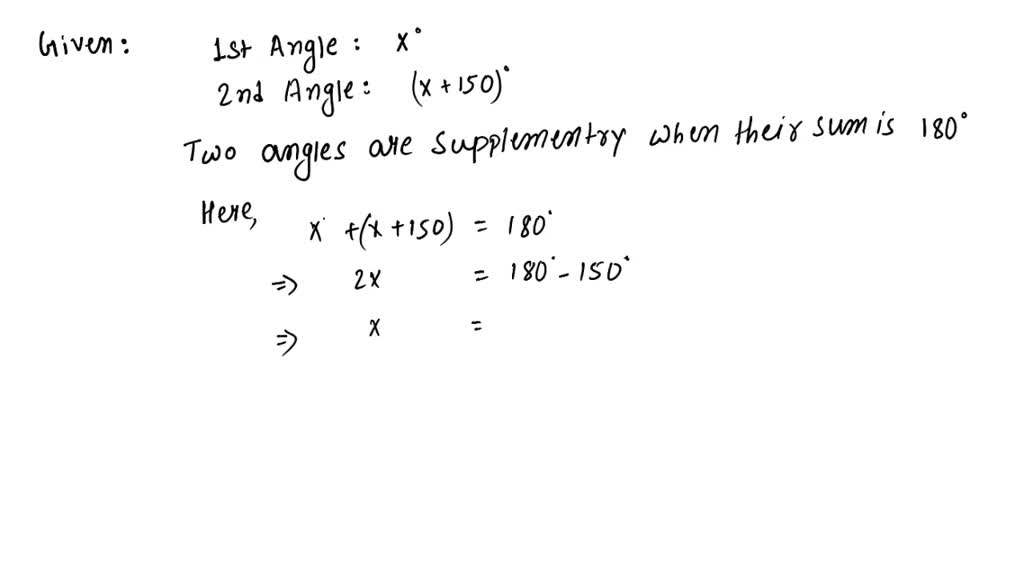 Given: 1st Angle: x°
2nd Angle: (x+150)°
Two angles are supplementry when their sum is 180°
Here, x° +(x+150) = 180°
=> 2x = 180° - 150°
=> x =